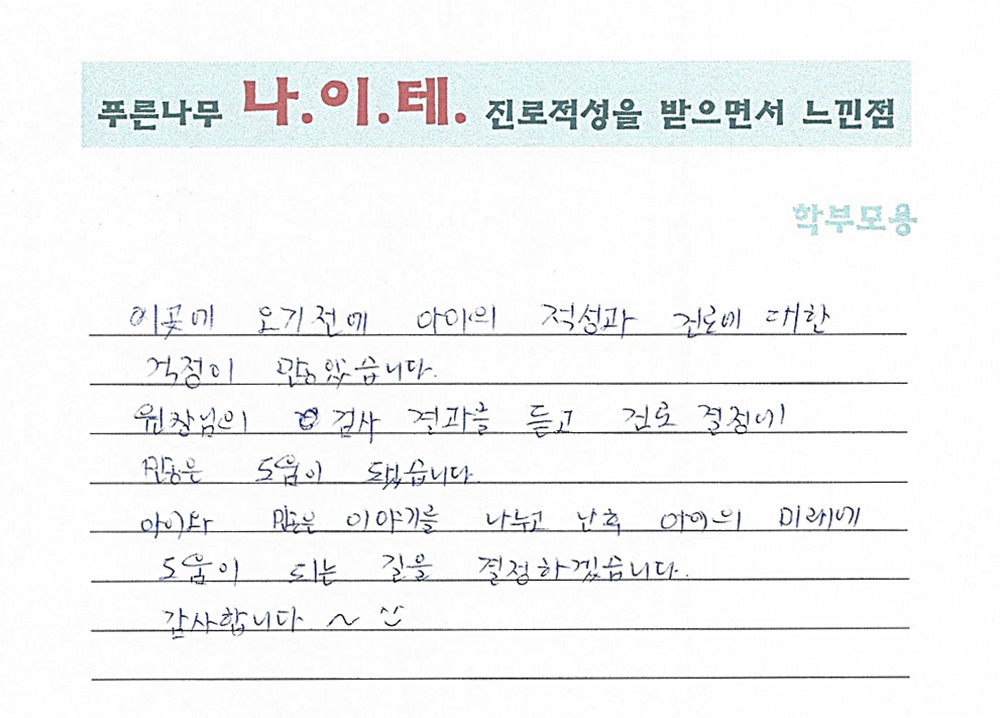 푸른나무 나.이.테. 진로적성을 받으면서 느낀점
학부모용
이곳에 오기전에 아이의 적성과 진로에 대한
걱정이 많았습니다.
원장님의 검사 결과를 듣고 진로 결정에
많은 도움이 되었습니다.
아이와 많은 이야기를 나누고 난후 아이의 미래에
도움이 되는 길을 결정하겠습니다.
감사합니다 ~